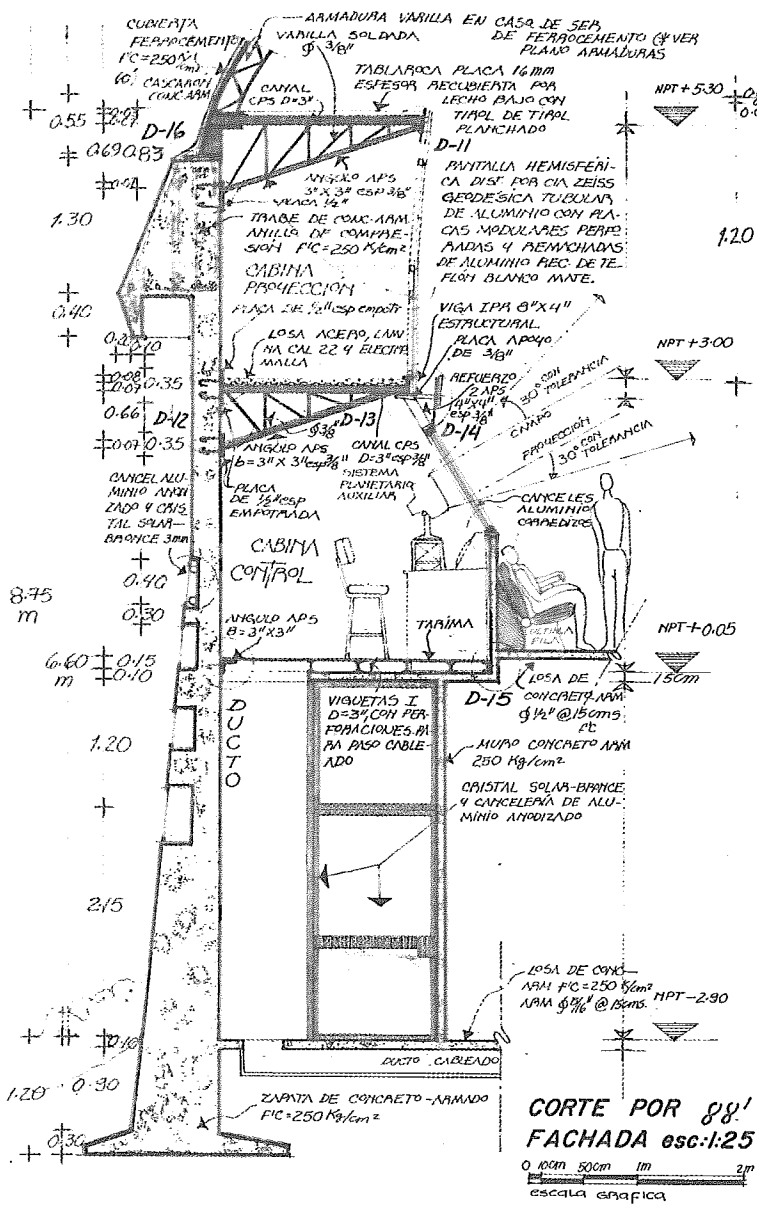 CUBIERTA
FERROCEMENTO
F'C=250
CASCARON
CONC-ARM
ARMADURA VARILLA EN CASO DE SER
DE FERROCEMENTO (* VER
PLANO ARMADURAS
VARILLA SOLDADA
Ø 3/8"
CANAL
CPS D=3"
TABLAROCA PLACA 16 mm
ESPESOR RECUBIERTA POR
LECHO BAJO CON
TIROL DE TIROL
PLANCHADO
NPT+5.30
0.55
D-16
0.69 0.83
D-11
ANGULO APS
3"X3" esp 3/8"
PLACA 1/2"
TRABE DE CONC-ARM
ANILLO DE COMPRE-
SION F'C=250 K/cm²
PANTALLA HEMISFÉRI-
CA DIST. POR CIA ZEISS
GEODESICA TUBULAR
DE ALUMINIO CON PLA-
CAS MODULARES PERFO-
RADAS Y REMACHADAS
DE ALUMINIO REC. DE TE-
FLÓN BLANCO MATE.
1.30
1.20
CABINA
PROYECCION
PLACA DE 1/2" esp empotr
0.40
LOSA ACERO, LAMI-
NA CAL 22 Y ELECTRO
MALLA
VIGA IPR 8"X4"
ESTRUCTURAL.
PLACA APOYO
DE 3/8"
NPT+3.00
REFUERZO
2 APS
4"X4"
esp 3/8"
30° CON
TOLERANCIA
CAMPO
PROYECCION
30° CON
TOLERANCIA
0.08
0.07
0.35
0.66
D-12
0.07
0.35
Ø3/8"
D-13
D-14
ANGULO APS
b=3"X3" esp 3/8"
CANAL CPS
D=3" esp 3/8"
SISTEMA
PLANETARIO
AUXILIAR
PLACA
DE 1/2" esp
EMPOTRADA
CANCEL ALU-
MINIO ANODI-
ZADO Y CRIS-
TAL SOLAR-
BRONCE 3mm
CANCELES
ALUMINIO
CORREDIZOS
CABINA
CONTROL
8.75
m
0.40
0.30
ANGULO APS
B=3"X3"
TARIMA
ULTIMA
FILA
NPT+0.05
6.60
m
0.15
0.10
15cm
DUCTO
VIGUETAS I
D=3", CON PER-
FORACIONES PA-
RA PASO CABLE-
ADO
D-15
LOSA DE
CONCRETO-ARM
Ø 1/2" @ 15cms
MURO CONCRETO ARM
250 Kg/cm²
1.20
CRISTAL SOLAR-BRONCE
Y CANCELERÍA DE ALU-
MINIO ANODIZADO
2.15
LOSA DE CONC-
ARM F'C=250 K/cm²
ARM Ø 5/16" @ 15cms.
NPT-2.90
0.10
DUCTO CABLEADO
1.20
0.90
ZAPATA DE CONCRETO-ARMADO
F'C=250 Kg/cm²
0.30
CORTE POR gg'
FACHADA esc:1:25
0 10cm 50cm 1m 2m
escala grafica